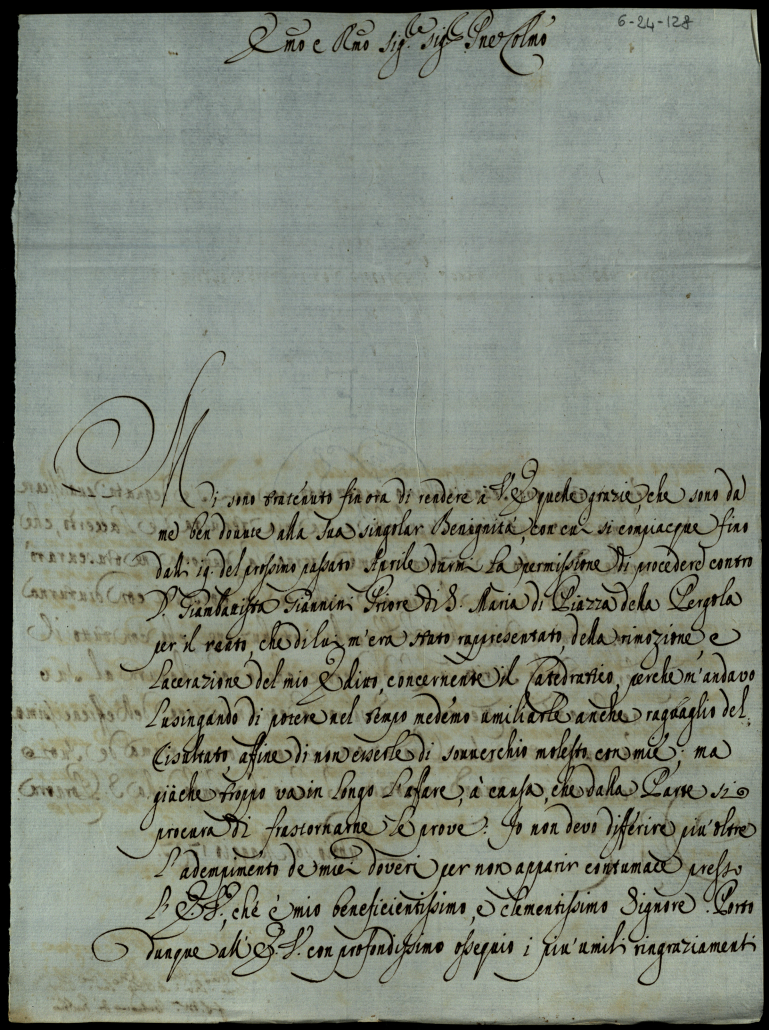 6-24-128
Emo e Rmo Sig.re Sig.re Pne Colmo
Mi sono tratenuto finora di rendere à V. E. quelle grazie, che sono da
me ben douute alla Sua singolar Benignità, con cui si compiacque fino
dalli 19. del prossimo passato Aprile darmi la permissione di procedere contro
D. Giambattista Giannini Priore di S. Maria di Piazza della Pergola
per il reato, che di lui m'era stato rappresentato, della rimozione, e
lacerazione del mio Editto, concernente il Catedratico, perche m'andavo
lusingando di potere nel tempo medemo umiliarle anche raguaglio del
risultato affine di non esserle di souuerchio molesto con mie; ma
giàche troppo và in longo l'affare, à causa, che dalla Parte si
procura di frastornarne le prove: Io non devo differire più oltre
l'adempimento de miei doveri per non apparir contumace presso
l'E. V., ché è mio beneficientissimo, e clementissimo Signore. Porto
dunque all'E. V. con profondissimo ossequio i più umili ringraziamenti